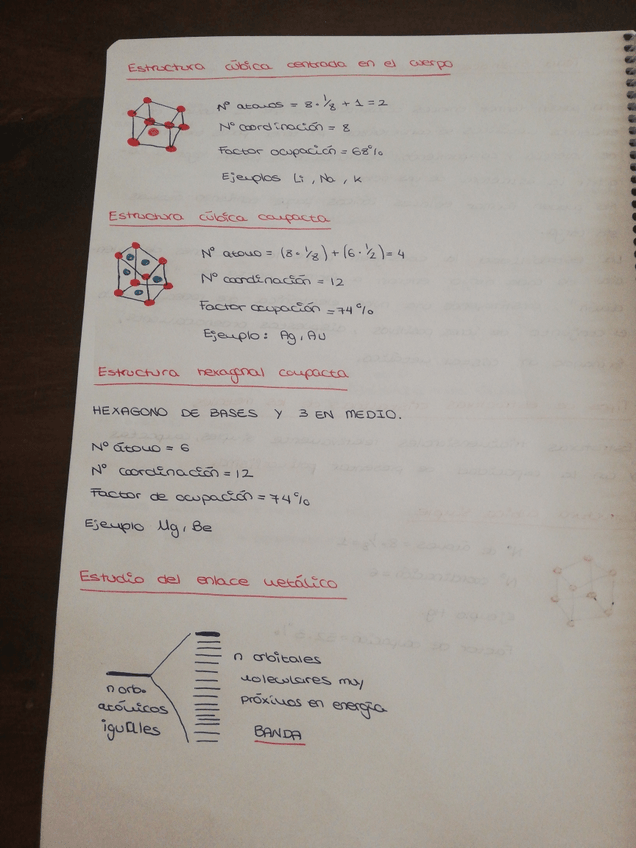 Estructura cúbica centrada en el cuerpo
Nº átomos = 8 · 1/8 + 1 = 2
Nº coordinación = 8
Factor ocupación = 68%
Ejemplos Li, Na, K
Estructura cúbica compacta
Nº átomo = (8 · 1/8) + (6 · 1/2) = 4
Nº coordinación = 12
Factor ocupación = 74%
Ejemplo: Ag, Au
Estructura hexagonal compacta
HEXAGONO DE BASES Y 3 EN MEDIO.
Nº átomo = 6
Nº coordinación = 12
Factor de ocupación = 74%
Ejemplo Mg, Be
Estudio del enlace metálico
n orb.
atómicos
iguales
n orbitales
moleculares muy
próximos en energía
BANDA